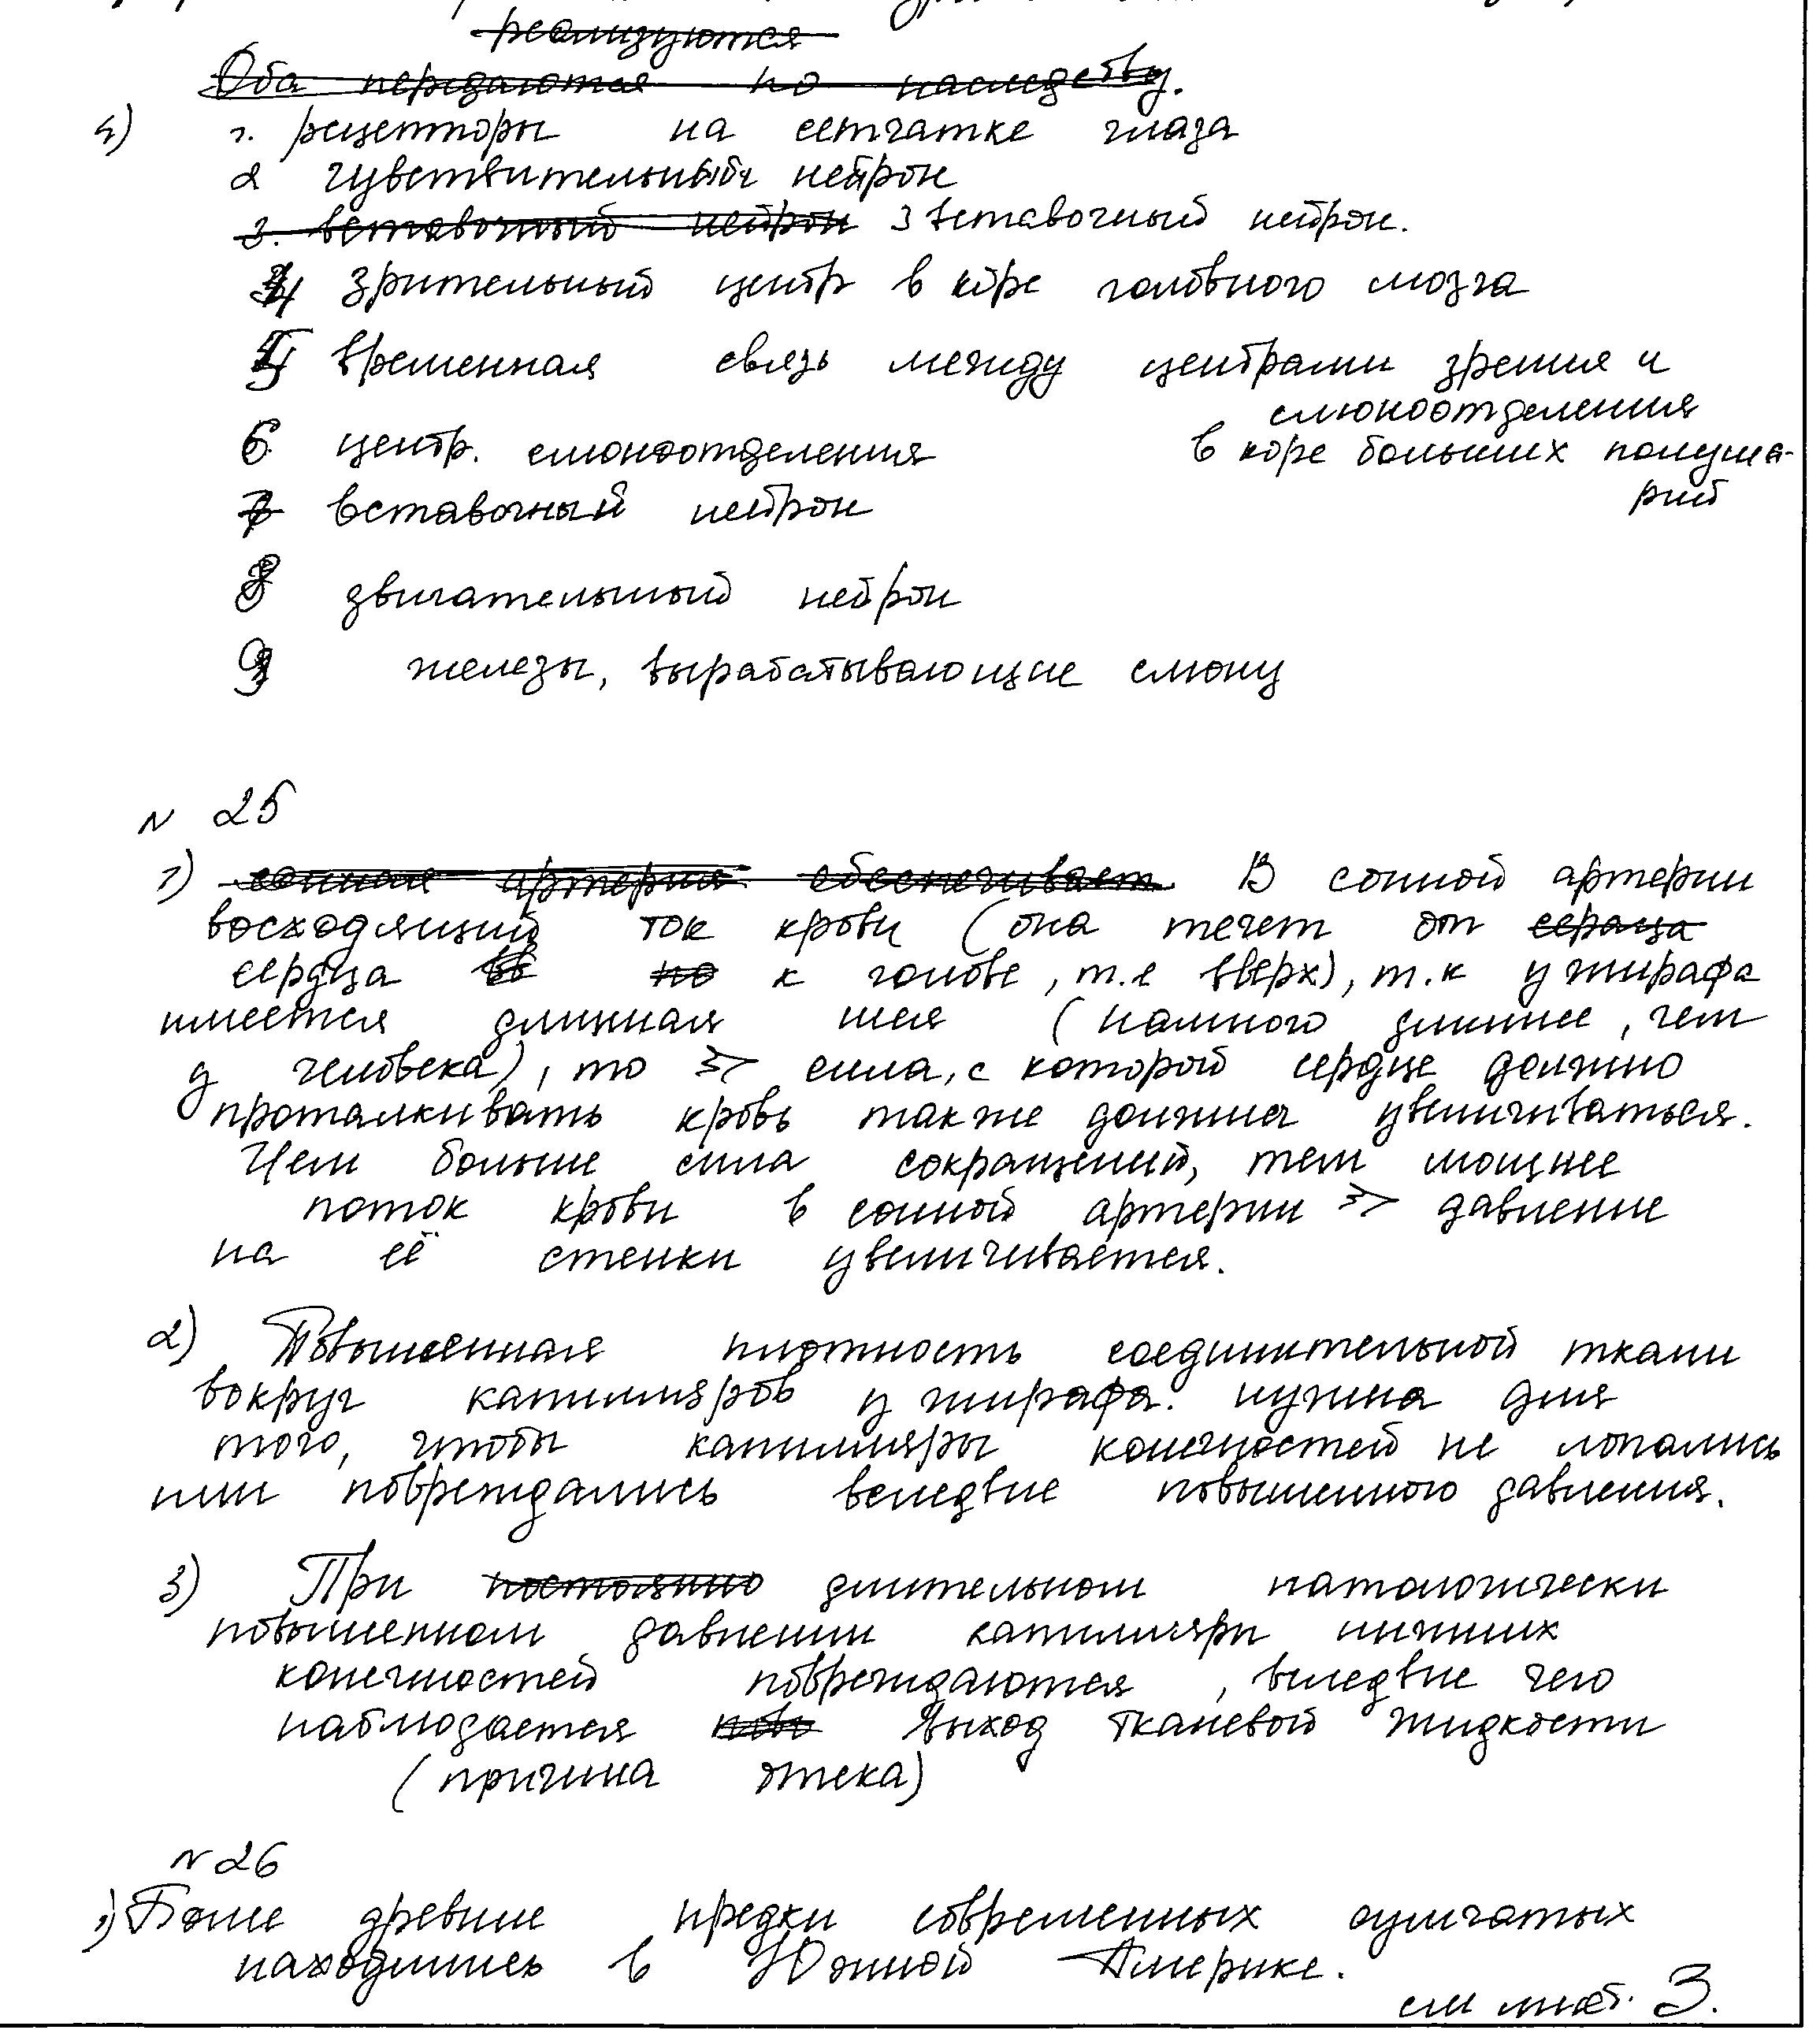 реализуются
Оба передаются по наследству.
4) 1. рецепторы на сетчатке глаза
2 чувствительный нейрон
3. вставочный нейрон 3 вставочный нейрон.
4 зрительный центр в коре головного мозга
5 временная связь между центрами зрения и
слюноотделения
6 центр. слюноотделения в коре больших полуша-
рий
7 вставочный нейрон
8 двигательный нейрон
9 железы, вырабатывающие слюну
N 25
1) сонная артерия обеспечивает В сонной артерии
восходящий ток крови (она течет от сердца
сердца по к голове, т.е вверх), т.к у жирафа
имеется длинная шея (намного длиннее, чем
у человека), то => сила, с которой сердце должно
проталкивать кровь также должна увеличиваться.
Чем больше сила сокращений, тем мощнее
поток крови в сонной артерии => давление
на её стенки увеличивается.
2) Повышенная плотность соединительной ткани
вокруг капилляров у жирафа. нужна для
того, чтобы капилляры конечностей не лопались
или повреждались вследвие повышенного давления.
3) При постоянно длительном патологически
повышенном давлении капилляры нижних
конечностей повреждаются, вследвие чего
наблюдается выход тканевой жидкости
(причина отека)
N 26
1) Более древние предки современных сумчатых
находились в Южной Америке.
см лист. 3.